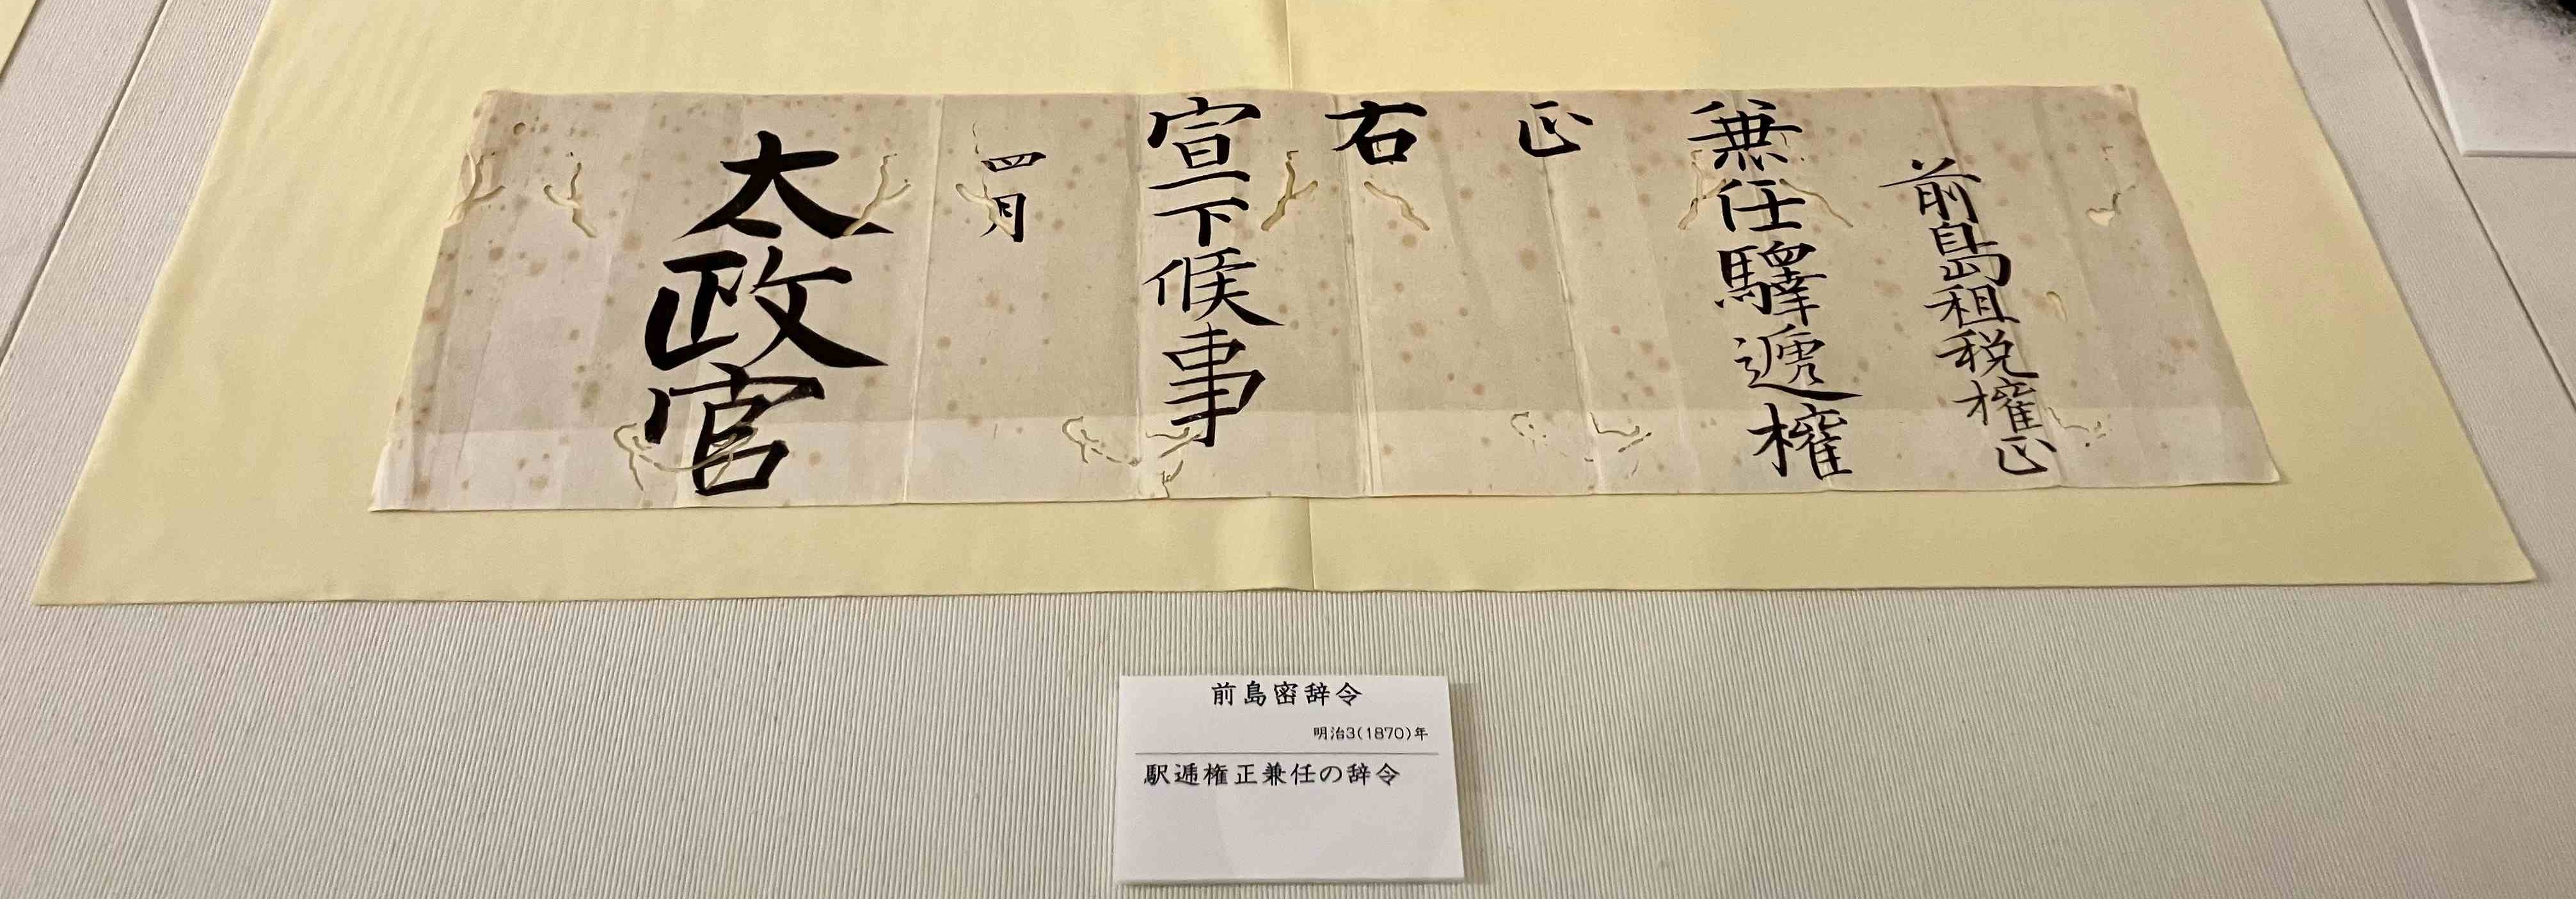 前島租税権正
兼任驛遞権
正
右
宣下候事
四月
太政官
前島密辞令
明治3(1870)年
駅逓権正兼任の辞令